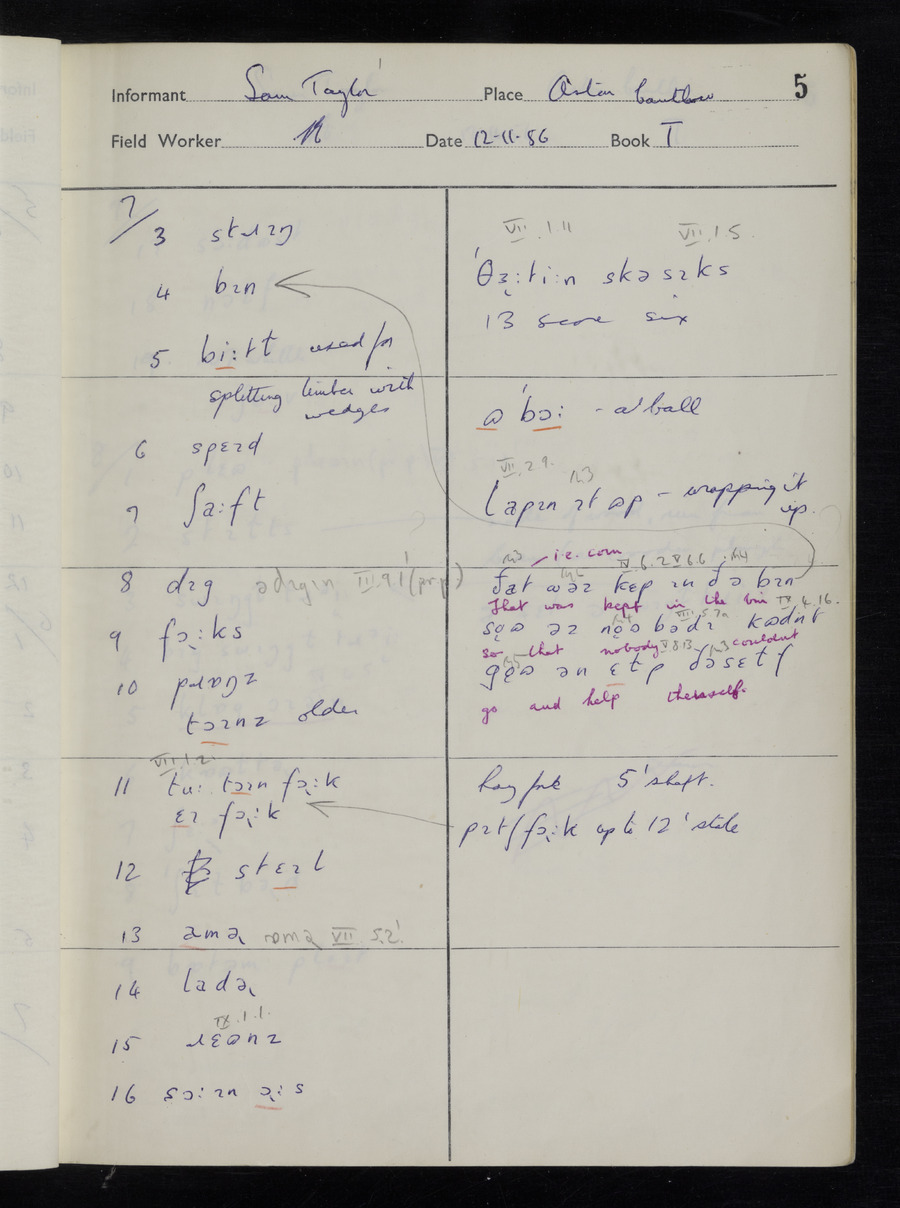 Informant Sam Taylor Place Aston Cantlow 5
Field Worker Date 12-11-56 Book I
7/3 stɹɪŋ
4 bɪn
5 bi:tt used for
splitting timber with
wedges
6 spɛɪd
7 ʃa:ft
8 dɪg ədɪgɪn III.9.1 (prp)
9 fɔ:ks
10 pɹɒŋz
tɔɪnz older
VII.1.2.
11 tu: tɔɪn fɔ:k
ɛɪ fɔ:k
12 stɛɪl
13 amə VII 5.2
14 ladə
IX.1.1.
15 ɹɛɷnz
16 sɔ:ɪn ɔ:s
VII.1.11 VII.15.
'θɜ:ti:n skɔ sɪks
13 score six
ɷ'bɔ: - a' ball
VII.2.9.
lapɪn ɪt ɷp - wrapping it
up.
i.e. corn
ðat wəz kɛp ɪn ðə bɪn
That was kept in the bin
sɔɷ əz nɔɷbədɪ kɷdnt
so that nobody couldn't
gɔɷ ən ɛlp ðəsɛlf
go and help theirself.
hay fork 5' shaft.
pɪtʃfɔ:k up to 12' stale